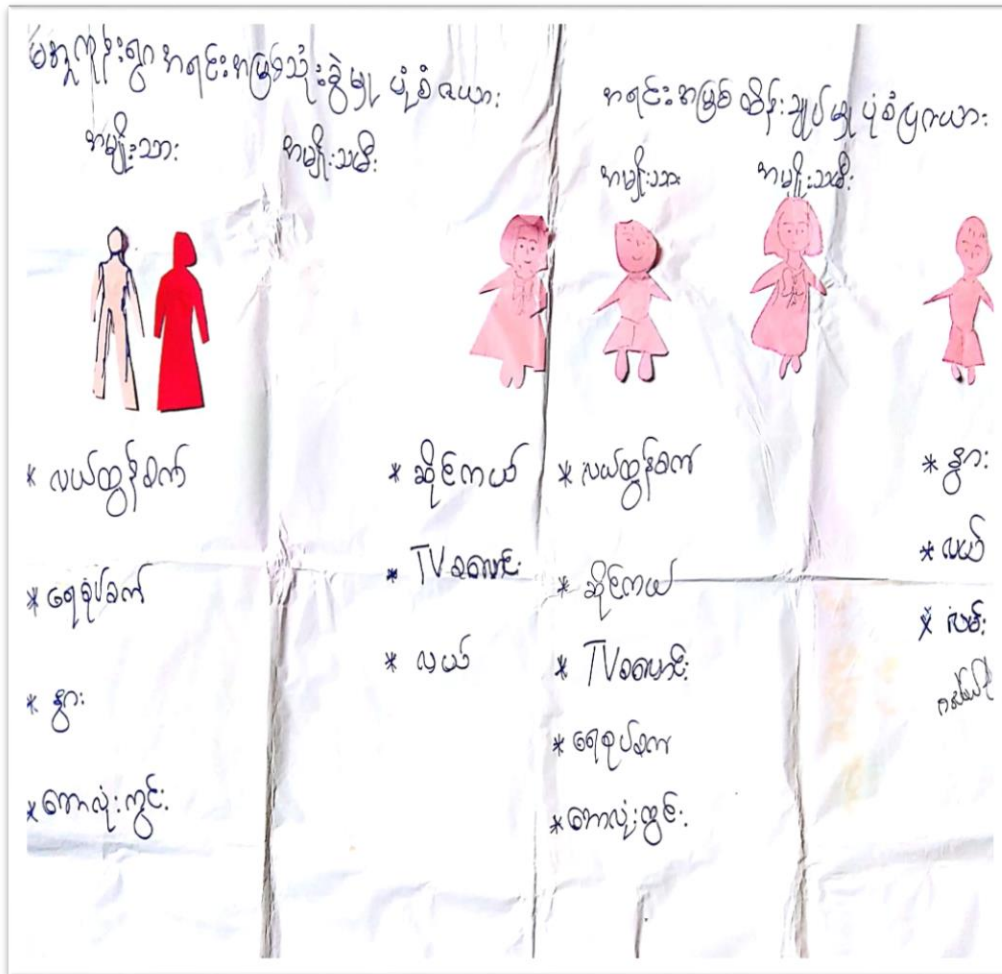 ကုန်းရွာ အရင်းအမြစ်သုံးစွဲမှု ပုံစံဇယား
အမျိုးသား
အမျိုးသမီး
* လယ်ထွန်စက်
* ရေစုပ်စက်
* နွား
* ဘောလုံးကွင်း
* ဆိုင်ကယ်
* TV စလောင်း
* လယ်
အရင်းအမြစ် ထိန်းချုပ်မှု ပုံစံပြဇယား
အမျိုးသား
အမျိုးသမီး
* လယ်ထွန်စက်
* ဆိုင်ကယ်
* TV စလောင်း
* ရေစုပ်စက်
* ဘောလုံးကွင်း
* နွား
* လယ်
* လမ်း